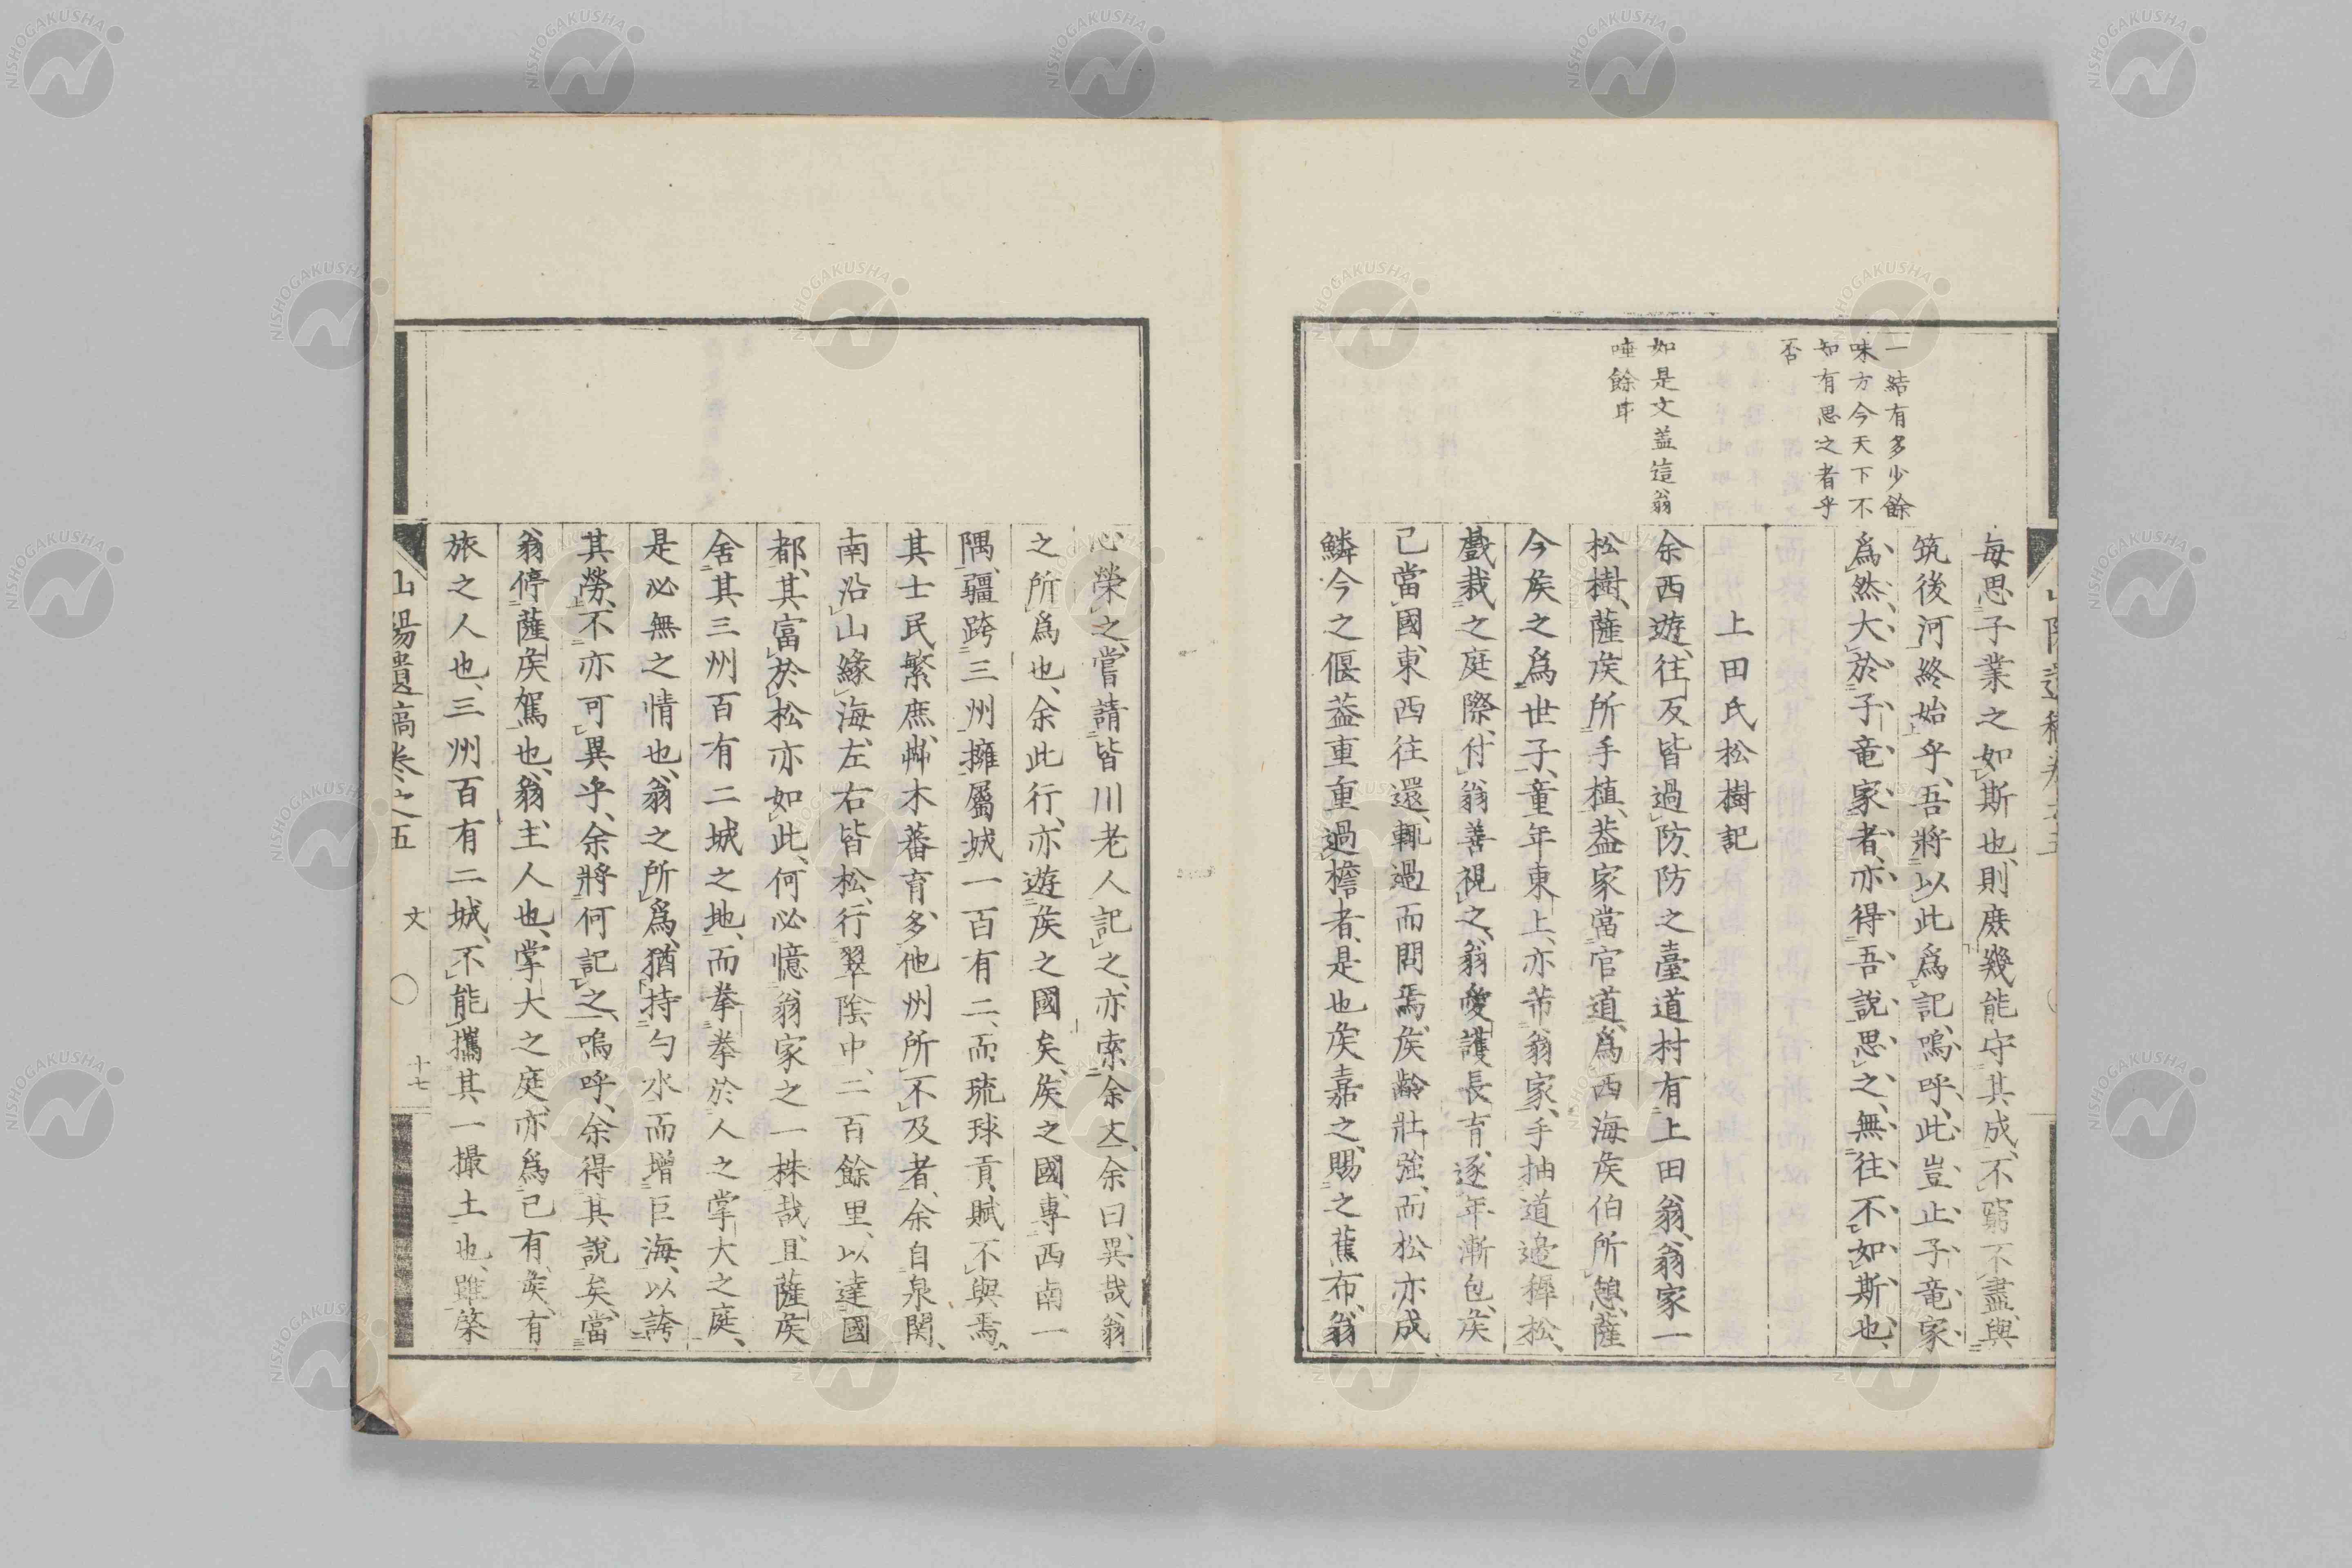 一結有多少餘
味方今天下不
知有思之者乎
否
如是文蓋這翁
唾餘耳
每思子業之如斯也、則庶幾能守其成、不窮不盡、與
筑後河終始乎、吾將以此爲記、嗚呼、此豈止子竜家
爲然、大於子竜家者、亦得吾說思之、無往不如斯也、
上田氏松樹記
余西遊、往反皆過防、防之臺道村有上田翁、翁家一
松樹、薩矦所手植、蓋家當官道、爲西海矦伯所憩、薩
今矦之爲世子、童年東上、亦芾翁家、手抽道邊穉松、
戲栽之庭際、付翁善視之、翁愛護長育、逐年漸包、矦
已當國、東西往還、輒過而問焉、矦齡壯強、而松亦成
鱗、今之偃蓋重重過檐者、是也、矦嘉之、賜之蕉布、翁
心榮之、嘗請皆川老人記之、亦索余文、余曰、異哉翁
之所爲也、余此行、亦遊矦之國矣、矦之國、專西南一
隅、疆跨三州、擁屬城一百有二、而琉球貢賦不與焉、
其士民繁庶、艸木蕃育、多他州所不及者、余自泉関、
南沿山緣海、左右皆松、行翠陰中、二百餘里、以達國
都、其富於松亦如此、何必憶翁家之一株哉、且薩矦
舍其三州百有二城之地、而拳拳於人之掌大之庭、
是必無之情也、翁之所爲、猶持勺水而增巨海、以誇
其勞、不亦可異乎、余將何記之、嗚呼、余得其說矣、當
翁停薩矦駕也、翁主人也、掌大之庭、亦爲己有、矦、有
旅之人也、三州百有二城、不能攜其一撮土也、雖榮
山陽遺稿卷之五
文
十七